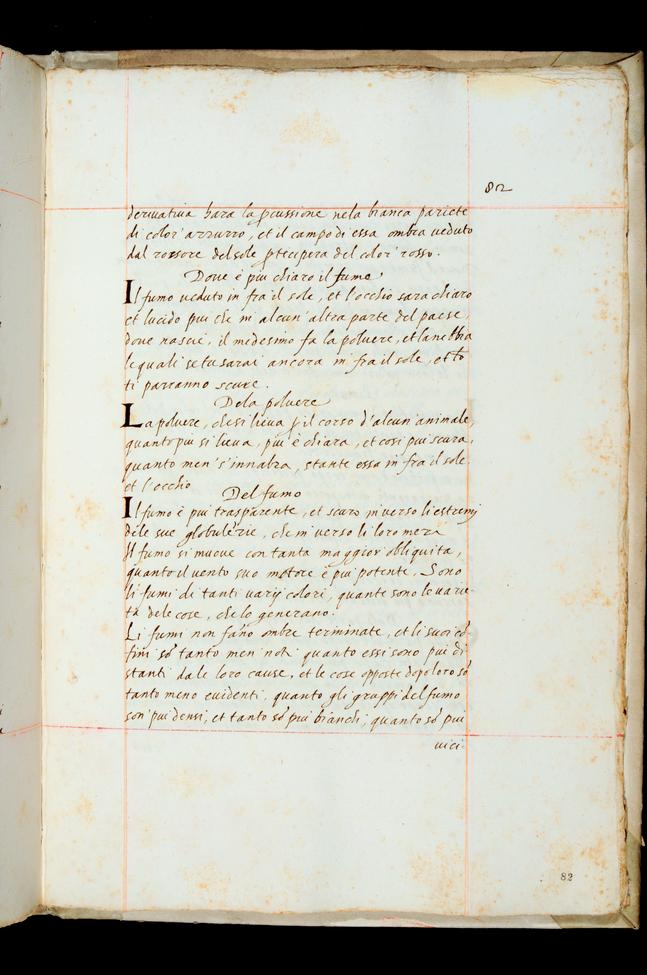 82
derivativa hara la pcussione nela bianca pariete
di color' azzurro, et il campo di essa ombra veduto
dal rossore del sole pticipera del color' rosso.
Dove è piu chiaro il fumo
Il fumo veduto in fra il sole, et l'occhio sara chiaro
et lucido piu che in alcun' altra parte del paese,
dove nasce, il medesimo fa la polvere, et la nebbia
le quali se tu sarai ancora in fra il sole, et
ti parranno scure.
Dela polvere
La polvere, che si lieva p il corso d'alcun' animale,
quanto piu si lieva, piu è chiara, et cosi piu scura,
quanto men' s'innalza, stante essa in fra il sole
et l'occhio
Del fumo
Il fumo è piu trasparente, et scuro in verso li estremi
dele sue globulerie, che in verso li loro mezzi
Il fumo si muove con tanta maggior' obliquita,
quanto il vento suo motore è piu potente. Sono
li fumi di tanti varij colori, quante sono le varie-
tà dele cose, che lo generano.
Li fumi non fano ombre terminate, et li suoi cō-
fini sō tanto men noti quanto essi sono piu di
stanti da le loro cause, et le cose opposte dopo loro sō
tanto meno evidenti, quanto gli gruppi del fumo
son' piu densi, et tanto sō piu bianchi, quanto sō piu
vici
82